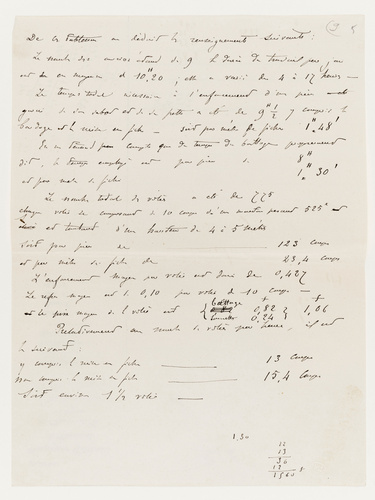 De ces tableaux on déduit les renseignements suivants :
Le nombre des ouvriers étant de 9 la durée du travail par jour
est de en moyen de 10,20 ; elle a varié de 4 à 17 heures —
Le temps total nécessaire à l'enfoncement d'un pieu
de 9h 1/2 y compris le
bardage et la mise en fiche — soit par mètre de fiche 1h,48'
En ne tenant pas compte que du temps de battage proprement
dit, le temps employé est par pieu de 8h
et par mètre de fiche 1h,30'
Le nombre total de volées a été de 775
chaque volée se composant de 10 coups d'un mouton pesant 525 k
et tombant d'une hauteur de 4 à 5 mètres
soit par pieu de 123 coups
et par mètre de fiche de 23,4 coups
L'enfoncement moyen par volée est donc de 0,427
Le refus moyen est de 0,10 par volée de 10 coups —
et le prix moyen de l'volée est { battage 0,82 } 1,06
0,24
Relativement au nombre de volées par heure, il est
le suivant :
y compris la mise en fiche —— 13 coups
non compris la mise en fiche —— 15,4 coups
Soit environ 1 1/2 volée —
1,30
12
13
36
12
1560